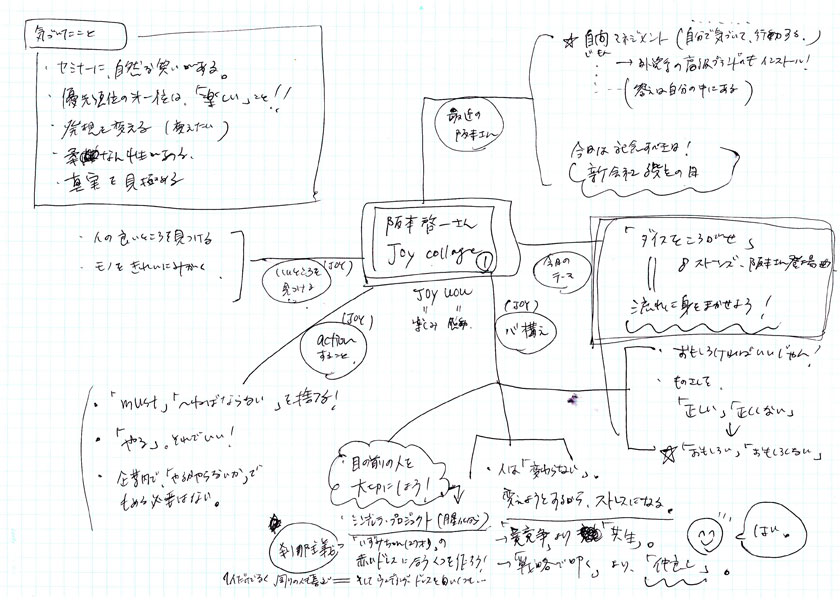 気づいたこと
・セミナーに、自然な笑いがある。
・優先順位のオ一位は、「楽しい」こと!!
・発想を変える (変えたい)
・柔なん性がある。
・真実を見極める
最近の
阪本さん
☆ 自向マネジメント (自分で気づいて、行動する。)
→ 外資の高級ブランドもインストール!
(答えは自分の中にある)
今日は記念すべき日!
新会社設立の日
阪本啓一さん
Joy collage ①
Joy wow
楽しみ 感動
今日の
テーマ
「ダイスをころがせ」
ストーンズ、阪本さん登場曲
流れに身をまかせよう!
・人の良いところを見つける
・モノをきれいにみがく
(JOY)
いいところを
見つける
(JOY)
action
すること
(JOY)
心構え
・おもしろければいいじゃん!
・ものさしを、
「正しい」「正しくない」
↓
☆「おもしろい」「おもしろくない」
・「must」「〜ねばならない」を捨てる!
・「やる」。それでいい!
・企業内で、「やるかやらないか」で
もめる必要はない。
・目の前の人を
大切にしよう!
・シンデレラ・プロジェクト
刹那主義
赤いドレスに合うくつを作ろう!
・人は「変わらない」。
変えようとするから、ストレスになる。
→「競争」より「共生」。
→「戦略で叩く」より、「仲良し」。
はい。